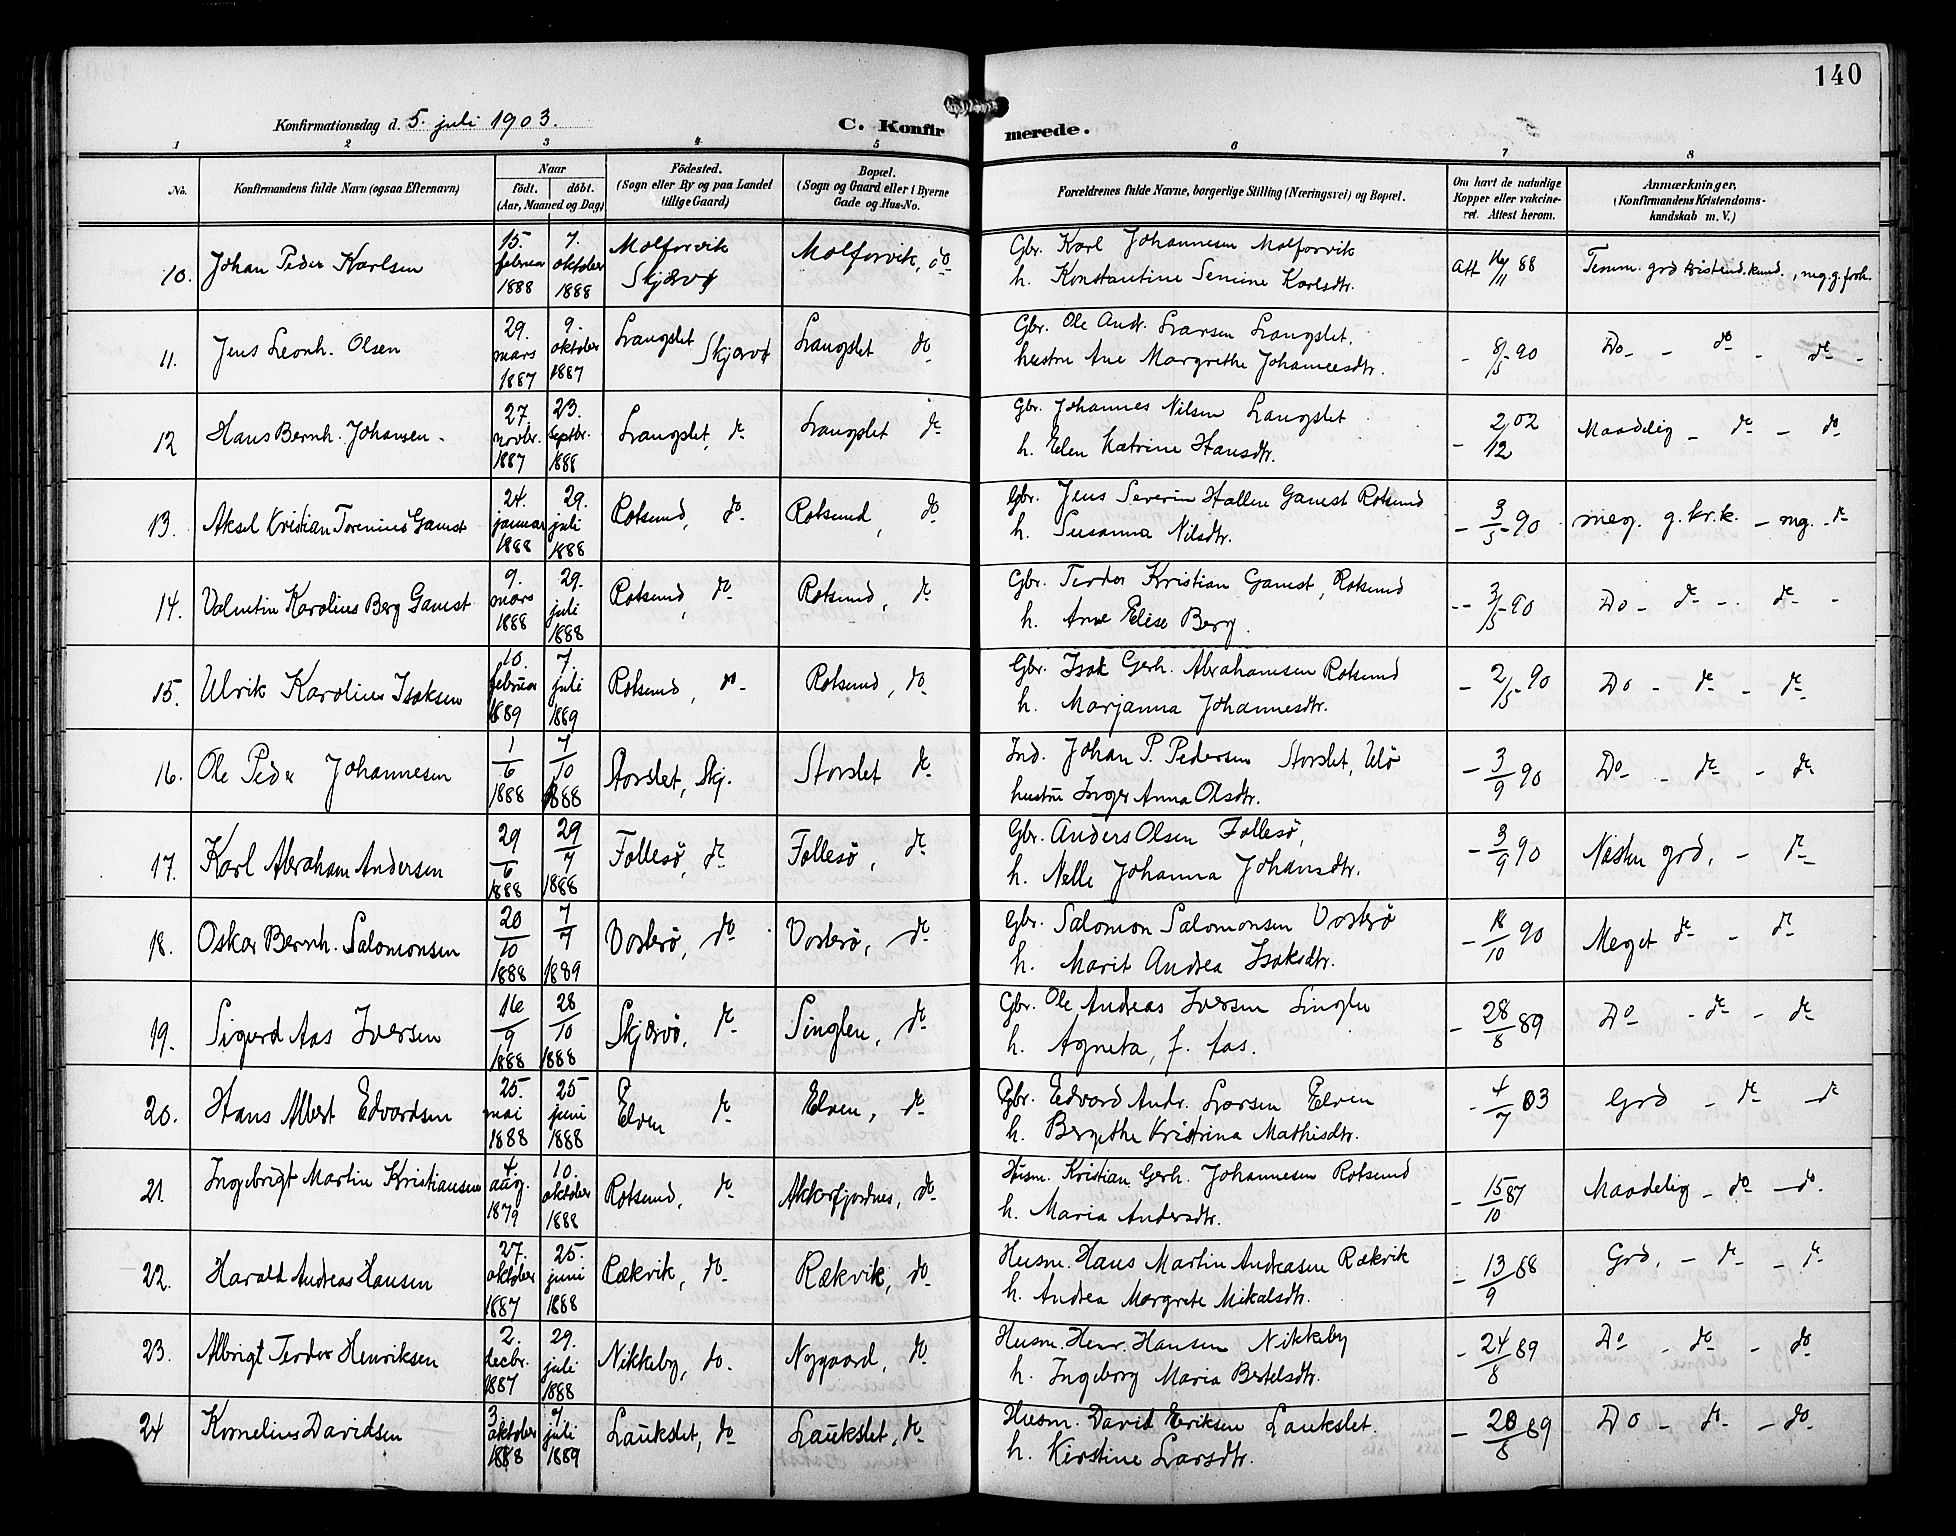 140
Konfirmationsdag d. 5. juli 1903.
C. Konfirmerede.
1 2 3 4 5 6 7 8
No.
Konfirmandens fulde Navn (ogsaa Efternavn)
Naar
födt. döbt.
(Aar, Maaned og Dag)
Födested.
(Sogn eller By og paa Landet
tillige Gaard)
Bopæl.
(Sogn og Gaard eller i Byerne
Gade og Hus-No.
Forældrenes fulde Navne, borgerlige Stilling (Næringsvei) og Bopæl.
Om havt de naturlige
Kopper eller vakcine-
ret. Attest herom.
Anmærkninger.
(Konfirmandens Kristendoms-
kundskab m. V.)
10. Johan Peder Karlsen 15. februar 1888 7. oktober 1888 Molforvik Skjærvø Molforvik, do Gbr. Karl Johannesen Molforvik
h. Konstantine Semine Karlsdtr. Att 16/11 88 Temm. grd kristend. kund., meg. g. forh.
11. Jens Leonh. Olsen 29. mars 1887 9. oktober 1887 Langslet Skjærvø Langslet do Gbr. Ole Andr. Larsen Langslet.
hustru Ane Margrethe Johannesdtr. - 8/5 90 Do - do - do -
12 Hans Bernh. Johansen - 27. novbr. 1887 23. septbr. 1888 Langslet, do Langslet do Gbr. Johannes Nilsen Langslet
h. Elen Katrine Hansdtr. - 2/12 02 Maadelig - do - do
13. Aksel Kristian Torenius Gamst 24. januar 1888 29. juli 1888 Rotsund, do Rotsund, do Gbr. Jens Severin Hallen Gamst Rotsund
h. Susanna Nilsdtr. - 3/5 - 90 meg. g. kr. k. - mg. - do
14. Valentin Karolius Berg Gamst 9. mars 1888 29. juli 1888 Rotsund, do Rotsund, do Gbr. Terder Kristian Gamst, Rotsund
h. Anne Elise Berg. -- 3/5 - 90 Do - do - do -
15. Ulrik Karolius Isaksen 10. februar 1889 7. juli 1889 Rotsund, do Rotsund, do Gbr. Isak Gerh. Abrahamsen Rotsund
h. Marjanna Johannesdtr. - 2/5 - 90 Do - do - do
16. Ole Peder Johannesen 1/6 1888 7/10 1888 Storslet, Skj. Storslet do Ind. Johan P. Pedersen Storslet, Ulø
hustru Inger Anna Olsdtr. - 3/9 90 Do - do - do
17. Karl Abraham Andersen 29/6 1888 29/7 1888 Follesö, do Follesö, do Gbr. Anders Olsen Follesö,
h. Nelle Johanna Johansdtr. - 3/9 90 Næsten grd. - do
18. Oskar Bernh. Salomonsen 20/10 1888 7/7 1889 Vorterö, do Vorterö, do Gbr. Salomon Salomonsen Vorterö
h. Marit Andrea Isaksdtr. - 18/10 90 Meget do - do
19. Sigurd Aas Iversen 16/9 1888 28/10 1888 Skjærvö, do Singlen, do Gbr. Ole Andreas Iversen Singlen
h. Agneta, f. Aas. - 28/8 89 Do - do - do
20. Hans Albert Edvardsen 25. mai 1888 25 juni 1888 Elven do Elven, do Gbr. Edvard Andr. Larsen Elven
h. Bergethe Kristina Mathisdtr. - 4/7 03 Grd - do - do
21. Ingebrigt Martin Kristiansen 4 aug. 1879 10. oktober 1888 Rotsund, do Akkarfjordnes, do Husm. Kristian Gerh. Johannesen Rotsund
h. Maria Andersdtr. - 15/10 87 Maadelig - do - do.
22. Harald Andreas Hansen 27. oktober 1887 25. juni 1888 Rækvik, do. Rækvik, do Husm. Hans Martin Andreasen Rækvik
h. Andrea Margrete Mikalsdtr. - 13/9 88 Grd. - do - do
23. Albrigt Terder Henriksen 2. decbr. 1887 29. juli 1888 Nikkeby, do. Nygaard, do Husm. Henr. Hansen Nikkeby
h. Ingeborg Maria Bertelsdtr. - 24/8 89 Do - do - do
24 Kornelius Davidsen 3 oktober 1888 7. juli 1889 Laukslet, do Laukslet, do Husm. David Eriksen Laukslet.
h. Kirstine Larsdtr. - 28/8 89 Do - do - do